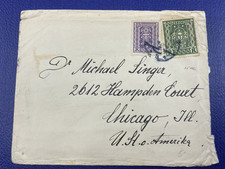 Dr Michael Singer,
2612 Hampden Court
Chicago, Ill.
U.S. o. Amerika